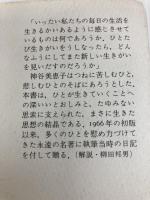 「いったい私たちの毎日の生活を
生きるかいあるように感じさせて
いるものは何であろうか。ひとた
び生きがいをうしなったら、どん
なふうにしてまた新しい生きがい
を見いだすのだろうか」
神谷美恵子はつねに苦しむひと、
悲しむひとのそばにあろうとした。
本書は、ひとが生きていくことへ
の深いいとおしみと、たゆみない
思索に支えられた、まさに生きた
思想の結晶である。1966年の初版
以来、多くのひとを慰め力づけてき
た永遠の名著に執筆当時の日記
を付して贈る。（解説・柳田邦男）